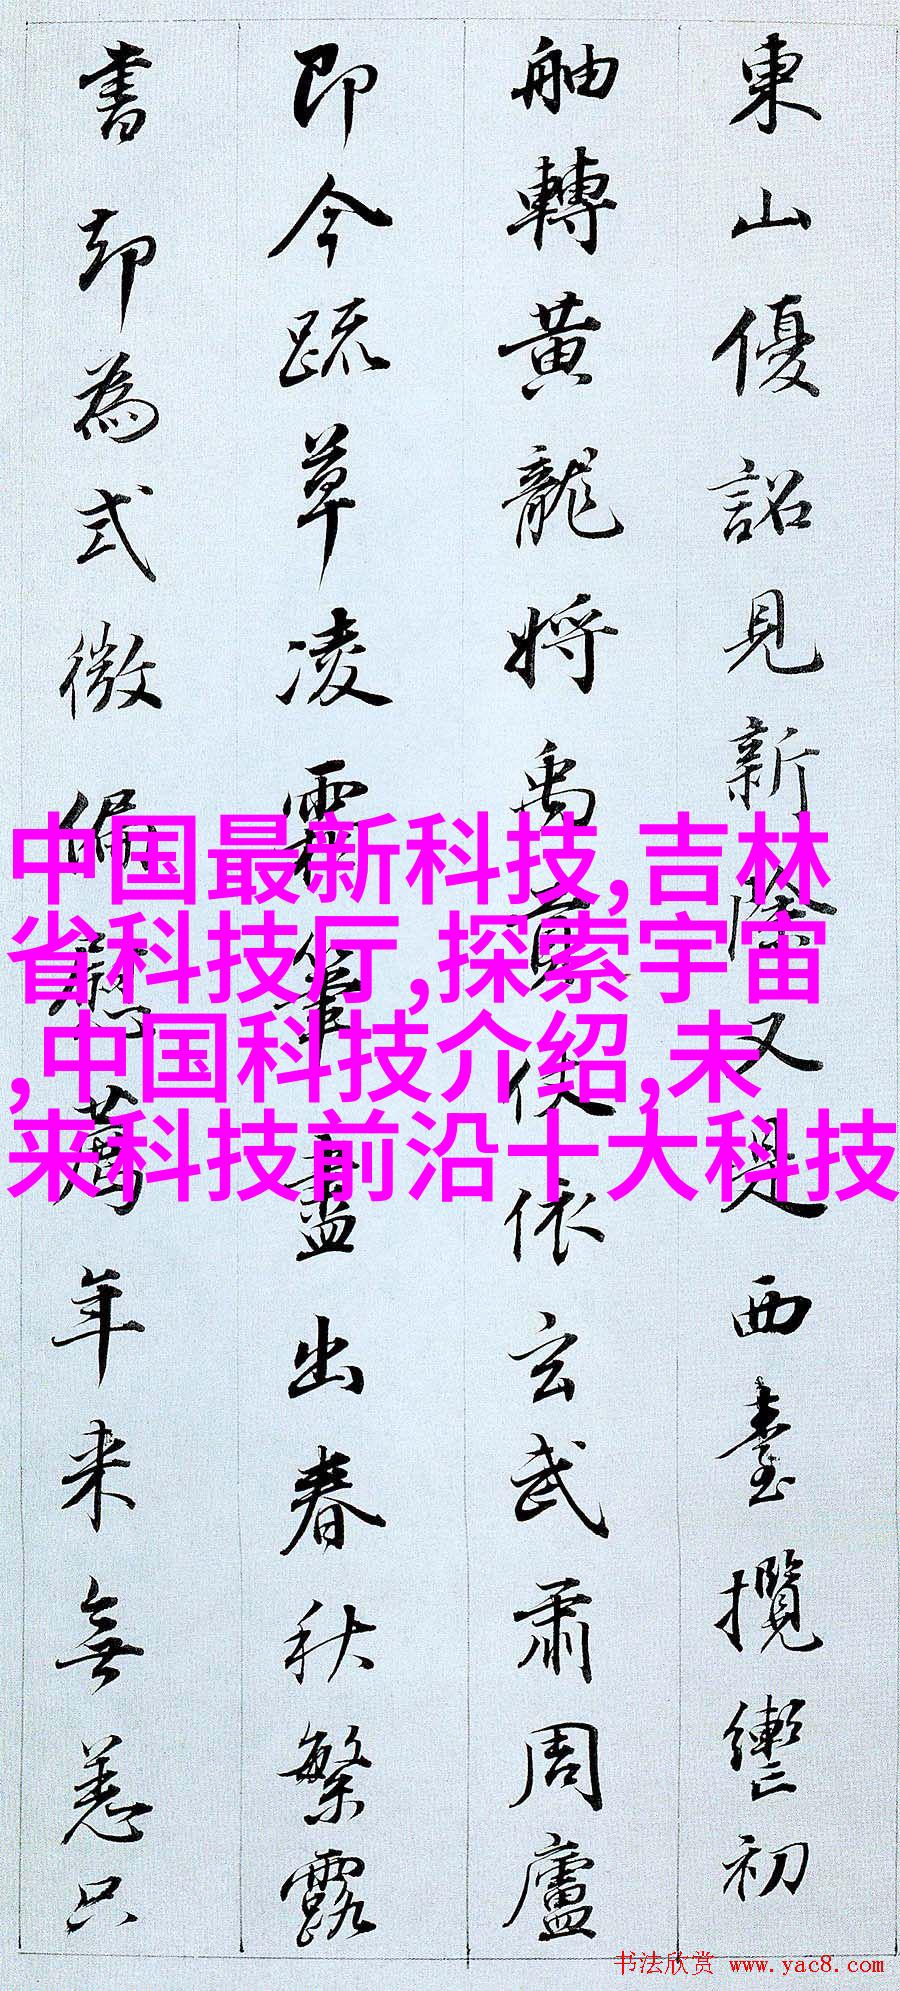 東山優詔見新除又是西臺攬轡初
舳轉黃龍將禹貢依玄武肅周廬
即今疏草凌霜筆盡出春秋繁露
書却為式微偏薦年来無恙只
中国最新科技,吉林
省科技厅,探索宇宙
,中国科技介绍,未
来科技前沿十大科技
书法欣赏 www.yac8.com